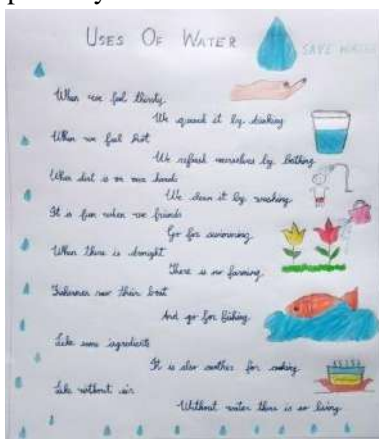 USES OF WATER
SAVE WATER
When we feel thirsty
We quench it by drinking
When we feel hot
We refresh ourselves by bathing
When dirt is on our hands
We clean it by washing
It is fun when we friends
Go for swimming
When there is drought
There is no farming
Fishermen row their boat
And go for fishing
Like some ingredients
It is also another for cooking
Like without air
Without water there is no living